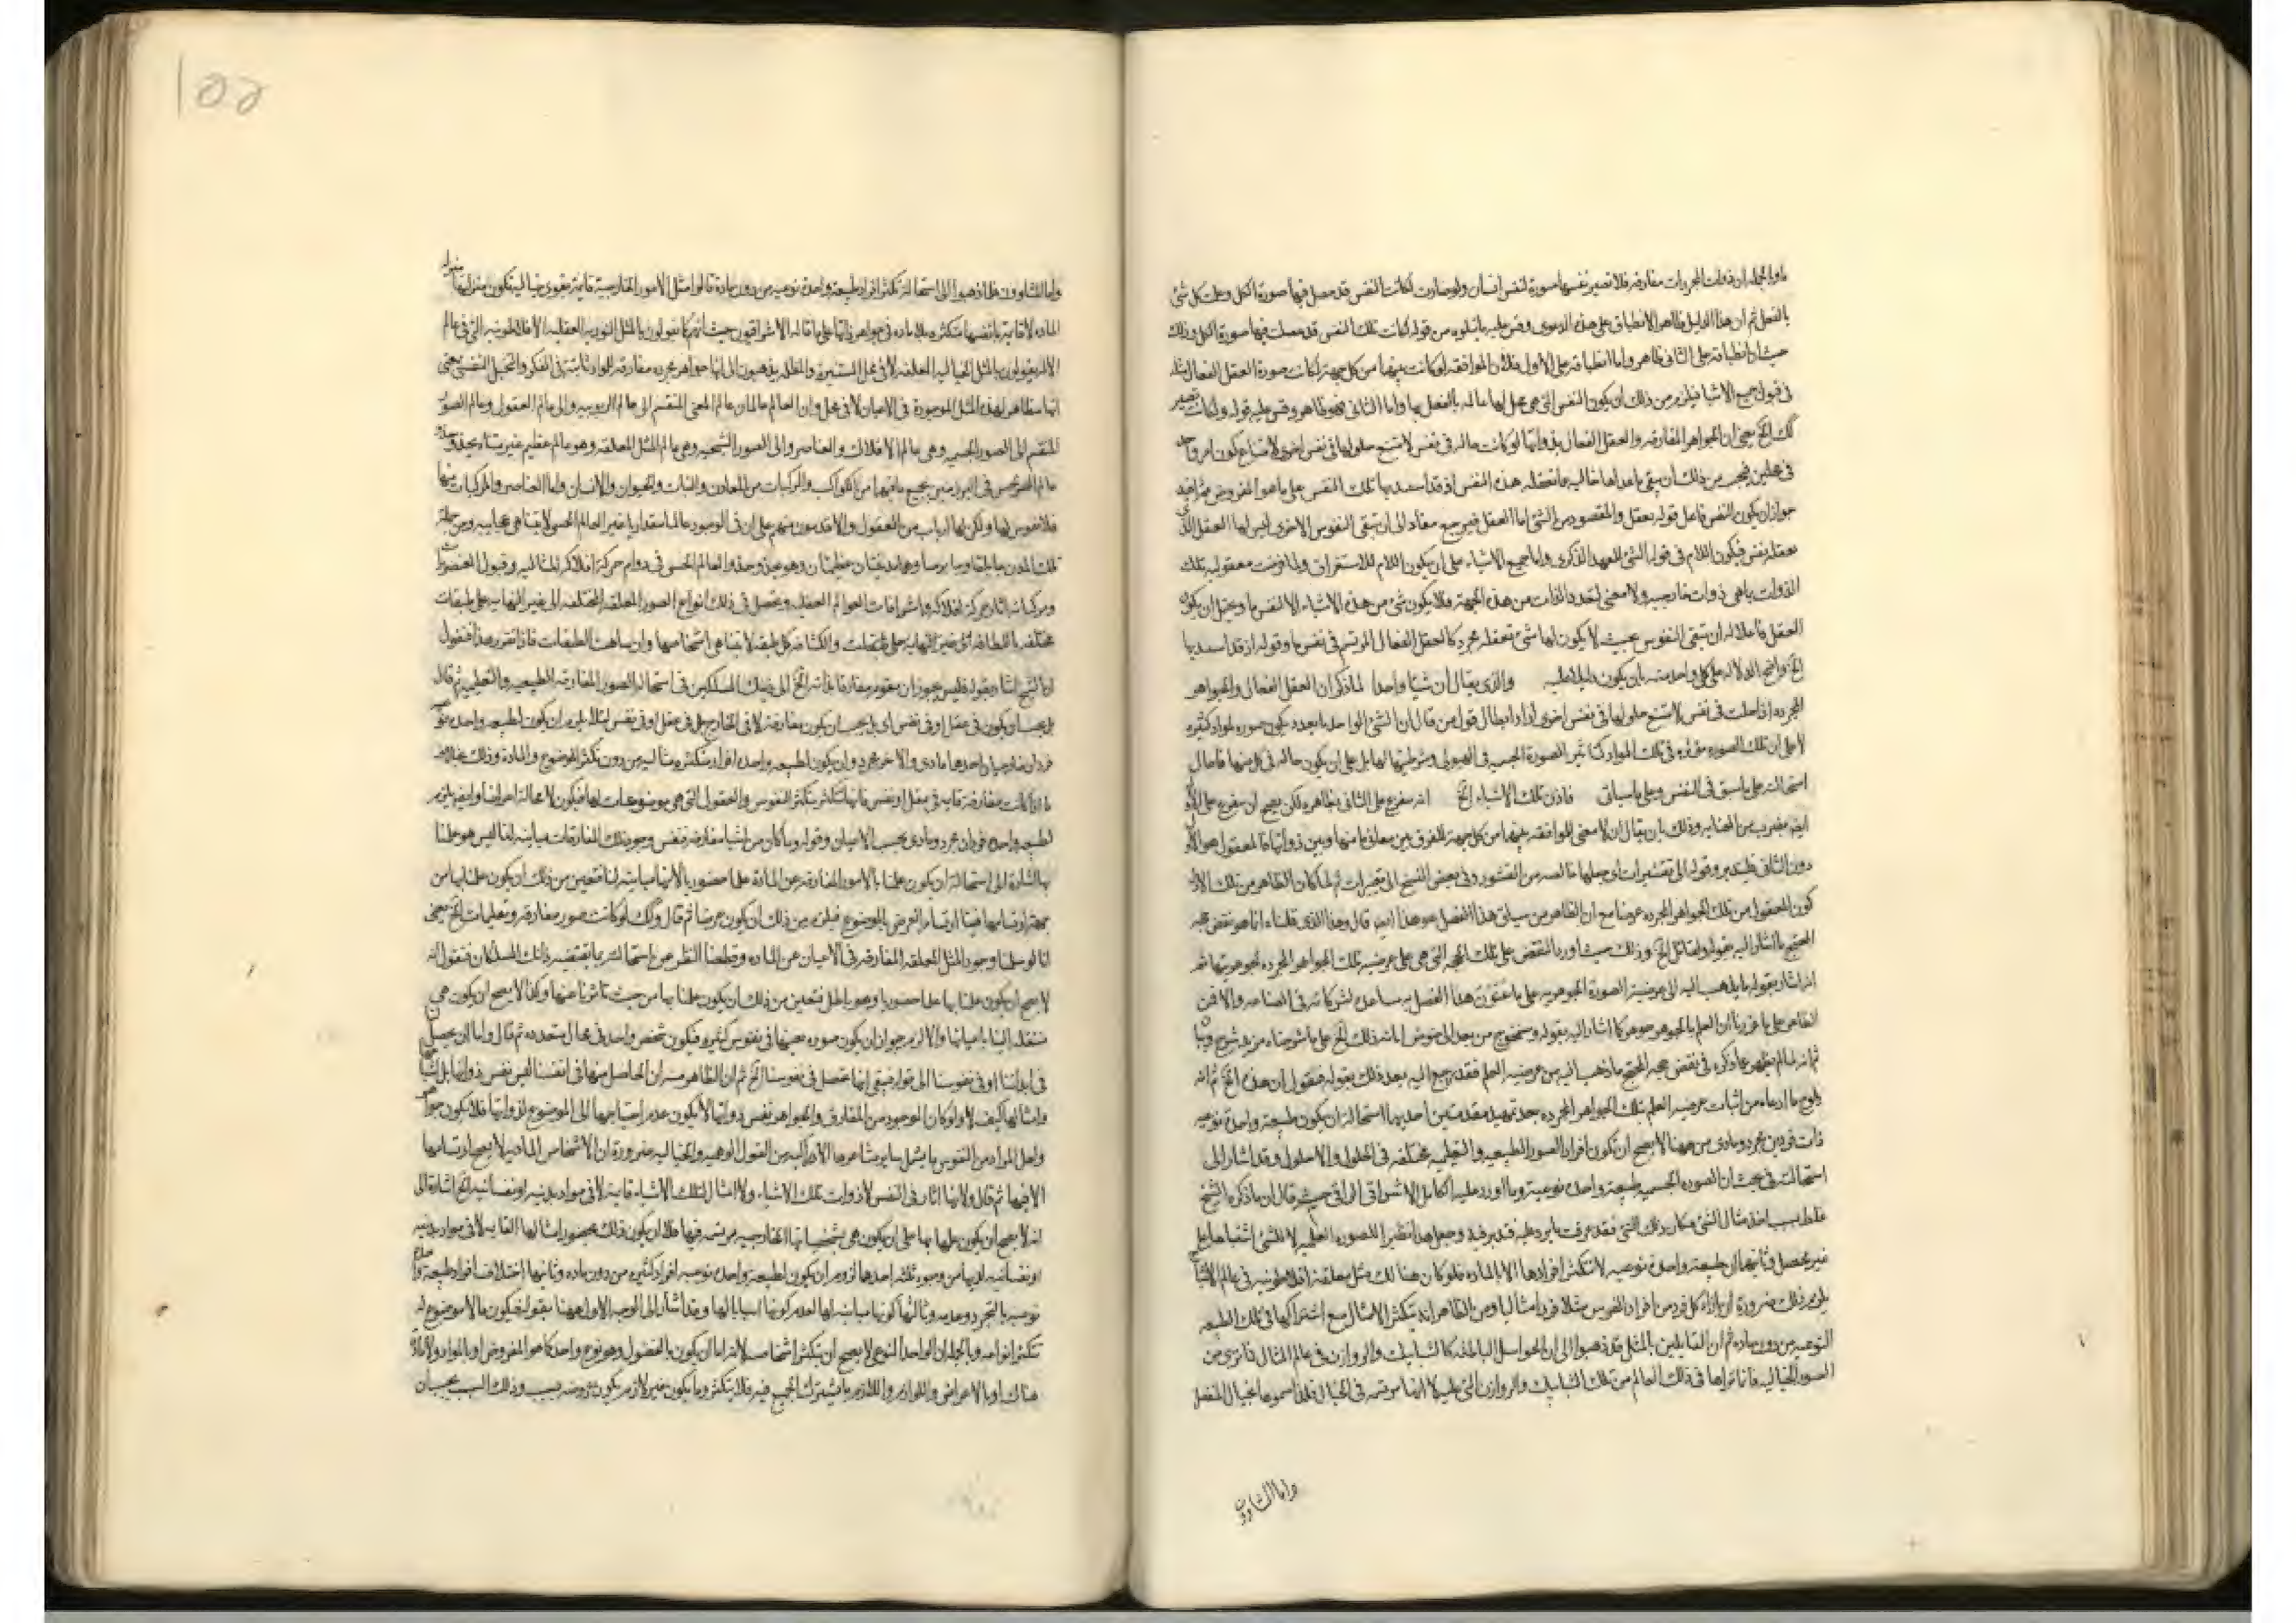 وبالجملة ان ذوات المجردات مفارقة فلا تصير نفسها صورة لنفس انسان ولو صارت لكانت النفس قد حصل فيها صورة الكل وعلمت كل شئ
بالفعل ثم ان هذا الدليل ظاهر الانطباق على هذه الدعوى وقس عليه ما يتلوه من قوله لكانت تلك النفس قد حصلت فيها صورة الكل وذلك
حيث ان انطباقه على الثاني ظاهر واما انطباقه على الاول فلان الموافقة لو كانت بينهما من كل جهة لكانت صورة العقل الفعال مثله
في قبول جميع الاشياء فيلزم من ذلك ان يكون النفس التي هي محل لها عالمة بالفعل بها واما الثاني فهو ظاهر وقس عليه قوله ولكانت تصير
كك الخ يعنى ان الجواهر المفارقة والعقل الفعال بذواتها لو كانت حالة في نفس لامتنع حلولها في نفس اخرى لامتناع كون امر واحد
في محلين فيجب من ذلك ان يبقى ما عداها خالية ما تعقله هذه النفس اذ قد استبد بها تلك النفس على ما هو المفروض
جواز ان يكون النفس فاعل قوله يعقل والمقصود من الشئ اما العقل فيرجع مفاده الى ان تبقى النفوس الاخرى ليس لها العقل الذي
يعقله نفس فيكون اللام في قوله الشئ للعهد الذكرى واما جميع الاشياء على ان يكون اللام للاستغراق ولما فرضت معقولية تلك
الذوات بما هي ذوات خارجية ولا معنى لتعدد الذات من هذه الجهة فلا يكون شئ من هذه الاشياء الا لنفس ما ويحتمل ان يكون
العقل فاعلا له ان تبقى النفوس بحيث لا يكون لها شئ تعقله مجرد كالعقل الفعال المرتسم في نفس ما وقوله اذ قد استبد بها
الخ واضح الدلالة على كل واحد منه بان يكون دليلا عليه والذي يقال ان شيئا واحدا لما ذكر ان العقل الفعال والجواهر
المجرده اذا حلت في نفس لامتنع حلولها في نفس اخرى اراد ابطال قول من قال ان الشئ الواحد بالعدد يكون صورة لمواد كثيرة
لا على ان تلك الصورة مؤثرة في تلك المواد كتاثير الصورة الجسمية في الهيولى وشرطيتها لها بل على ان يكون حالة في كل منها فاحال
استحالته على ما سبق في النفس وعلى ما سياتى فاذن تلك الاشياء الخ انه متفرع على الثاني بظاهره لكن يصح ان يتفرع على الاول
ايضا بضرب من العناية وذلك بان يقال ان لا معنى للموافقة بينهما من كل جهة للفرق بين معانى ما منها وبين ذواتها فالمعقول هو الاول
دون الثاني فليتدبر وقوله الى تقشيرات اى جعلها خالصة من القشور وفي بعض النسخ الى تغيرات ثم لما كان الظاهر من تلك الادلة
كون المعقول من تلك الجواهر المجرده عرضا مع ان الظاهر من سياق هذا الفصل هو هذا ايضا قال وهذا الذي قلناه انما هو نقض حجة
المحتج ما اشار اليه بقوله ولقائل الخ وذلك حيث اورد النقض على تلك الحجة التي هي على عرضية تلك الجواهر المجرده لجوهريتها ثم
انه اشار بقوله ما يذهب اليه الى عرضية الصورة الجوهرية على ما عنون هذا الفصل به
ثم انه لما لم يظهر مما ذكره في نقض حجة المحتج ما ذهب اليه من عرضية العلم فقد رجع اليه بعد ذلك بقوله فنقول ان هذه الخ ثم انه
ما ادعاه من اثبات عرضية العلم بتلك الجواهر المجرده بعد تمهيد مقدمتين احديهما استحالة ان يكون طبيعة واحدة نوعية
ذات فردين مجرد ومادى من ههنا لا يصح ان تكون افراد الصور الطبيعية والتعليمية مختلفة في الحلول واللاحلول وقد اشار الى
استحالته في بحث ان الصورة الجسمية طبيعة واحدة نوعية وما اورد عليه
غلط بسبب اخذ مثال الشئ مكان ذلك الشئ فقد عرفت ما يرد عليه فتدبر فيه
غير محصل وثانيها ان طبيعة واحدة نوعية لا تتكثر افرادها الا بالمادة فلو كان هنالك مثل معلقة افلاطونية في عالم الاشباح
يلزم ذلك ضرورة ان بازاء كل فرد من افراد الفرس مثلا فردا مثاليا ومن الظاهر انه يتكثر الامثال مع اشتراكها في تلك الطبيعة
النوعية من دون مادة ثم ان القائلين بالمثل قد ذهبوا الى ان الحواس الباطنة كالشبابيك والروازن في عالم المثال فما نرى من
الصور الخيالية فانا نراها في ذلك العالم من تلك الشبابيك والروازن التي عليه لا انها مرتسمة في الخيال فلذا سموها بخيال المنفصل
واما المشاؤون
١٥٥
واما المشاؤون فلما ذهبوا الى استحالة تكثر افراد طبيعة واحدة نوعية من دون مادة قالوا مثل الامور الخارجية قائمة بقوى خيالية تكون منزلتها منزلة
المادة لا قائمة بانفسها متكثرة بلا مادة في جواهر ذاتها على ما قاله الاشراقيون حيث انهم كما يقولون بالمثل النورية العقلية الافلاطونية التي في عالم
الامر يقولون بالمثل الخيالية المعلقة لا في محل المستنيرة والمظلمة يذهبون الى انها جواهر مجرده مفارقة للمواد ثابتة في الفكر والتخيل النفسى بمعنى
انها مظاهر لهذه المثل الموجودة في الاعيان لا في محل وان العالم عالمان عالم المعنى المنقسم الى عالم الربوبية والى عالم العقول وعالم الصور
المنقسم الى الصور الجسمية وهي عالم الافلاك والعناصر والى الصور الشبحية وهي عالم المثل المعلقة وهو عالم عظيم غير متناه يحذو حذو
عالم الحس في البرزخين بجميع ما فيهما من الكواكب والمركبات من المعادن والنبات والحيوان والانسان واما العناصر والمركبات منها
فلا نفوس لها ولكن لها ارباب من العقول والاقدمون منهم على ان في الوجود عالما مقداريا غير العالم الحسى لا يتناهى عجائبه ومن جملة
تلك المدن جابلقا وجابرسا وهما مدينتان عظيمتان وهو يحذو حذو العالم الحسى في دوام حركة افلاكه المثالية وقبول العنصريات
ومركباته اثار حركة افلاكه واشراقات العوالم العقلية ويحصل في ذلك انواع الصور المعلقة المختلفة الى غير النهاية على طبقات
مختلفة باللطافة والكثافة كل طبقة لا يتناهى اشخاصها وان تناهت الطبقات فاذا تقرر هذا فنقول
ان الشيخ اشار بقوله فليس يجوز ان يقوم مفارقا بذاته الخ الى ذينك المسلكين في استحالة الصور المفارقة الطبيعية والتعليمية ثم قال
بل يجب ان يكون في عقل او في نفس اى بل يجب ان يكون مفارقة لا في الخارج بل في عقل او في نفس لئلا يلزم ان يكون لطبيعة واحدة نوعية
فردان خارجيان احدهما مادى والاخر مجرد وان يكون لطبيعة واحدة افراد متكثرة مثالية من دون تكثر الموضوع والمادة وذلك بخلاف
ما اذا كانت مفارقة قائمة في عقل او نفس فانها تتكثر بتكثر النفوس والعقول التي هي موضوعات لها فيكون لا محالة اعراضا وايضا يلزم
لطبيعة واحدة فردان مجرد ومادى بحسب الاعيان وقوله وما كان من اشياء مفارقة فنفس وجود تلك المفارقات مباينة لنا ليس هو علمنا
بها اشارة الى استحالة ان يكون علمنا بالامور المفارقة عن المادة علما حضوريا لانها مباينة لنا فتعين من ذلك ان يكون علمنا بها من
جهة ارتسامها فينا ارتسام العرض بالموضوع فيلزم من ذلك ان يكون عرضا ثم قال وكك لو كانت صور مفارقة وتعليمات الخ يعنى
انا لو سلمنا وجود المثل المعلقة المفارقة في الاعيان عن المادة وقطعنا النظر عن استحالته بما يقتضيه ذانك المسلكان فنقول انه
لا يصح ان يكون علمنا بها علما حضوريا وهو باطل فتعين من ذلك ان يكون علمنا بها من حيث تاثرنا عنها وكذا لا يصح ان يكون هي
منتقلة الينا باعيانها والا لزم جواز ان يكون صورة بعينها في نفوس كثيرة فيكون شخص واحد في محال متعددة ثم قال واما ان يحصل
في ابداننا او في نفوسنا الى قوله فبقى انها تحصل في نفوسنا الخ ثم ان الظاهر منه ان الحاصل منها في انفسنا ليس نفس ذواتها بل اشباحها
وامثالها كيف لا ولو كان الموجود من المفارق والجواهر نفس ذواتها لا يكون عدم احتياجها الى الموضوع لذواتها فلا يكون جواهر
ولعل المراد من النفوس ما يشمل سائر مشاعرها الالية من القوى الوهمية والخيالية ضرورة ان الاشخاص المادية لا يصح ارتسامها
الا فيها ثم قال ولانها اثار في النفس لا ذوات تلك الاشياء ولا امثال لتلك الاشياء قائمة لا في مواد بدنية او نفسانية الخ اشارة الى
انه لا يصح ان يكون علمها بها على ان يكون هي بشخصياتها الخارجية مرتسمة فيها فلا ان يكون ذلك بحضور امثالها القائمة لا في مواد بدنية
او نفسانية لما بها من وجوه ثلثة احدها لزوم ان يكون لطبيعة واحدة نوعية افراد كثيرة من دون مادة وثانيها اختلاف افراد طبيعة واحدة
نوعية بالتجرد وعدمه وثالثها كونها مباينة لها لعدم كونها اسبابا لها وقد اشار الى الوجه الاول ههنا بقوله فيكون ما لا موضوع له
تتكثر انواعه وبالجملة ان الواحد النوعى لا يصح ان يتكثر اشخاصه لانه اما ان يكون بالفصول وهو نوع واحد كما هو المفروض او بالمواد ولا مادة
هناك او بالاعراض واللوازم واللازم ما يشترك الجميع فيه فلا يتكثر وما يكون غير لازم يكون عروضه بسبب وذلك السبب يجب ان